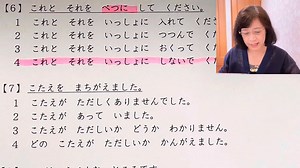 【6】 これと それを べつに して ください。
1 これと それを いっしょに 入れて くだ
2 これと それを いっしょに つつんで く
3 これと それを いっしょに おくって く
4 これと それを いっしょに しないで く
【7】 こたえを まちがえました。
1 こたえが ただしくありませんでした。
2 こたえが あって いました。
3 こたえが ただしいか どうか わかりません。
4 どの こたえが ただしいか かんがえました。